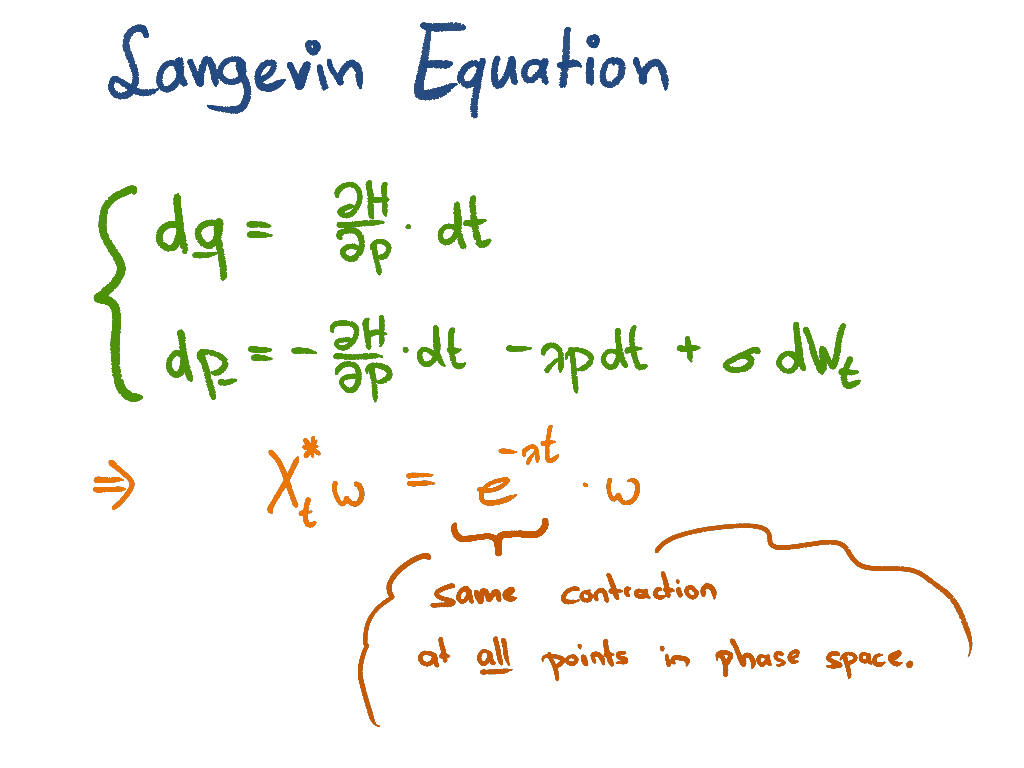 Langevin Equation
dq = ∂H/∂p · dt
dp = - ∂H/∂p · dt - λp dt + σ dWₜ
⇒ Xₜ* ω = e^(-λt) · ω
same contraction
at all points in phase space.